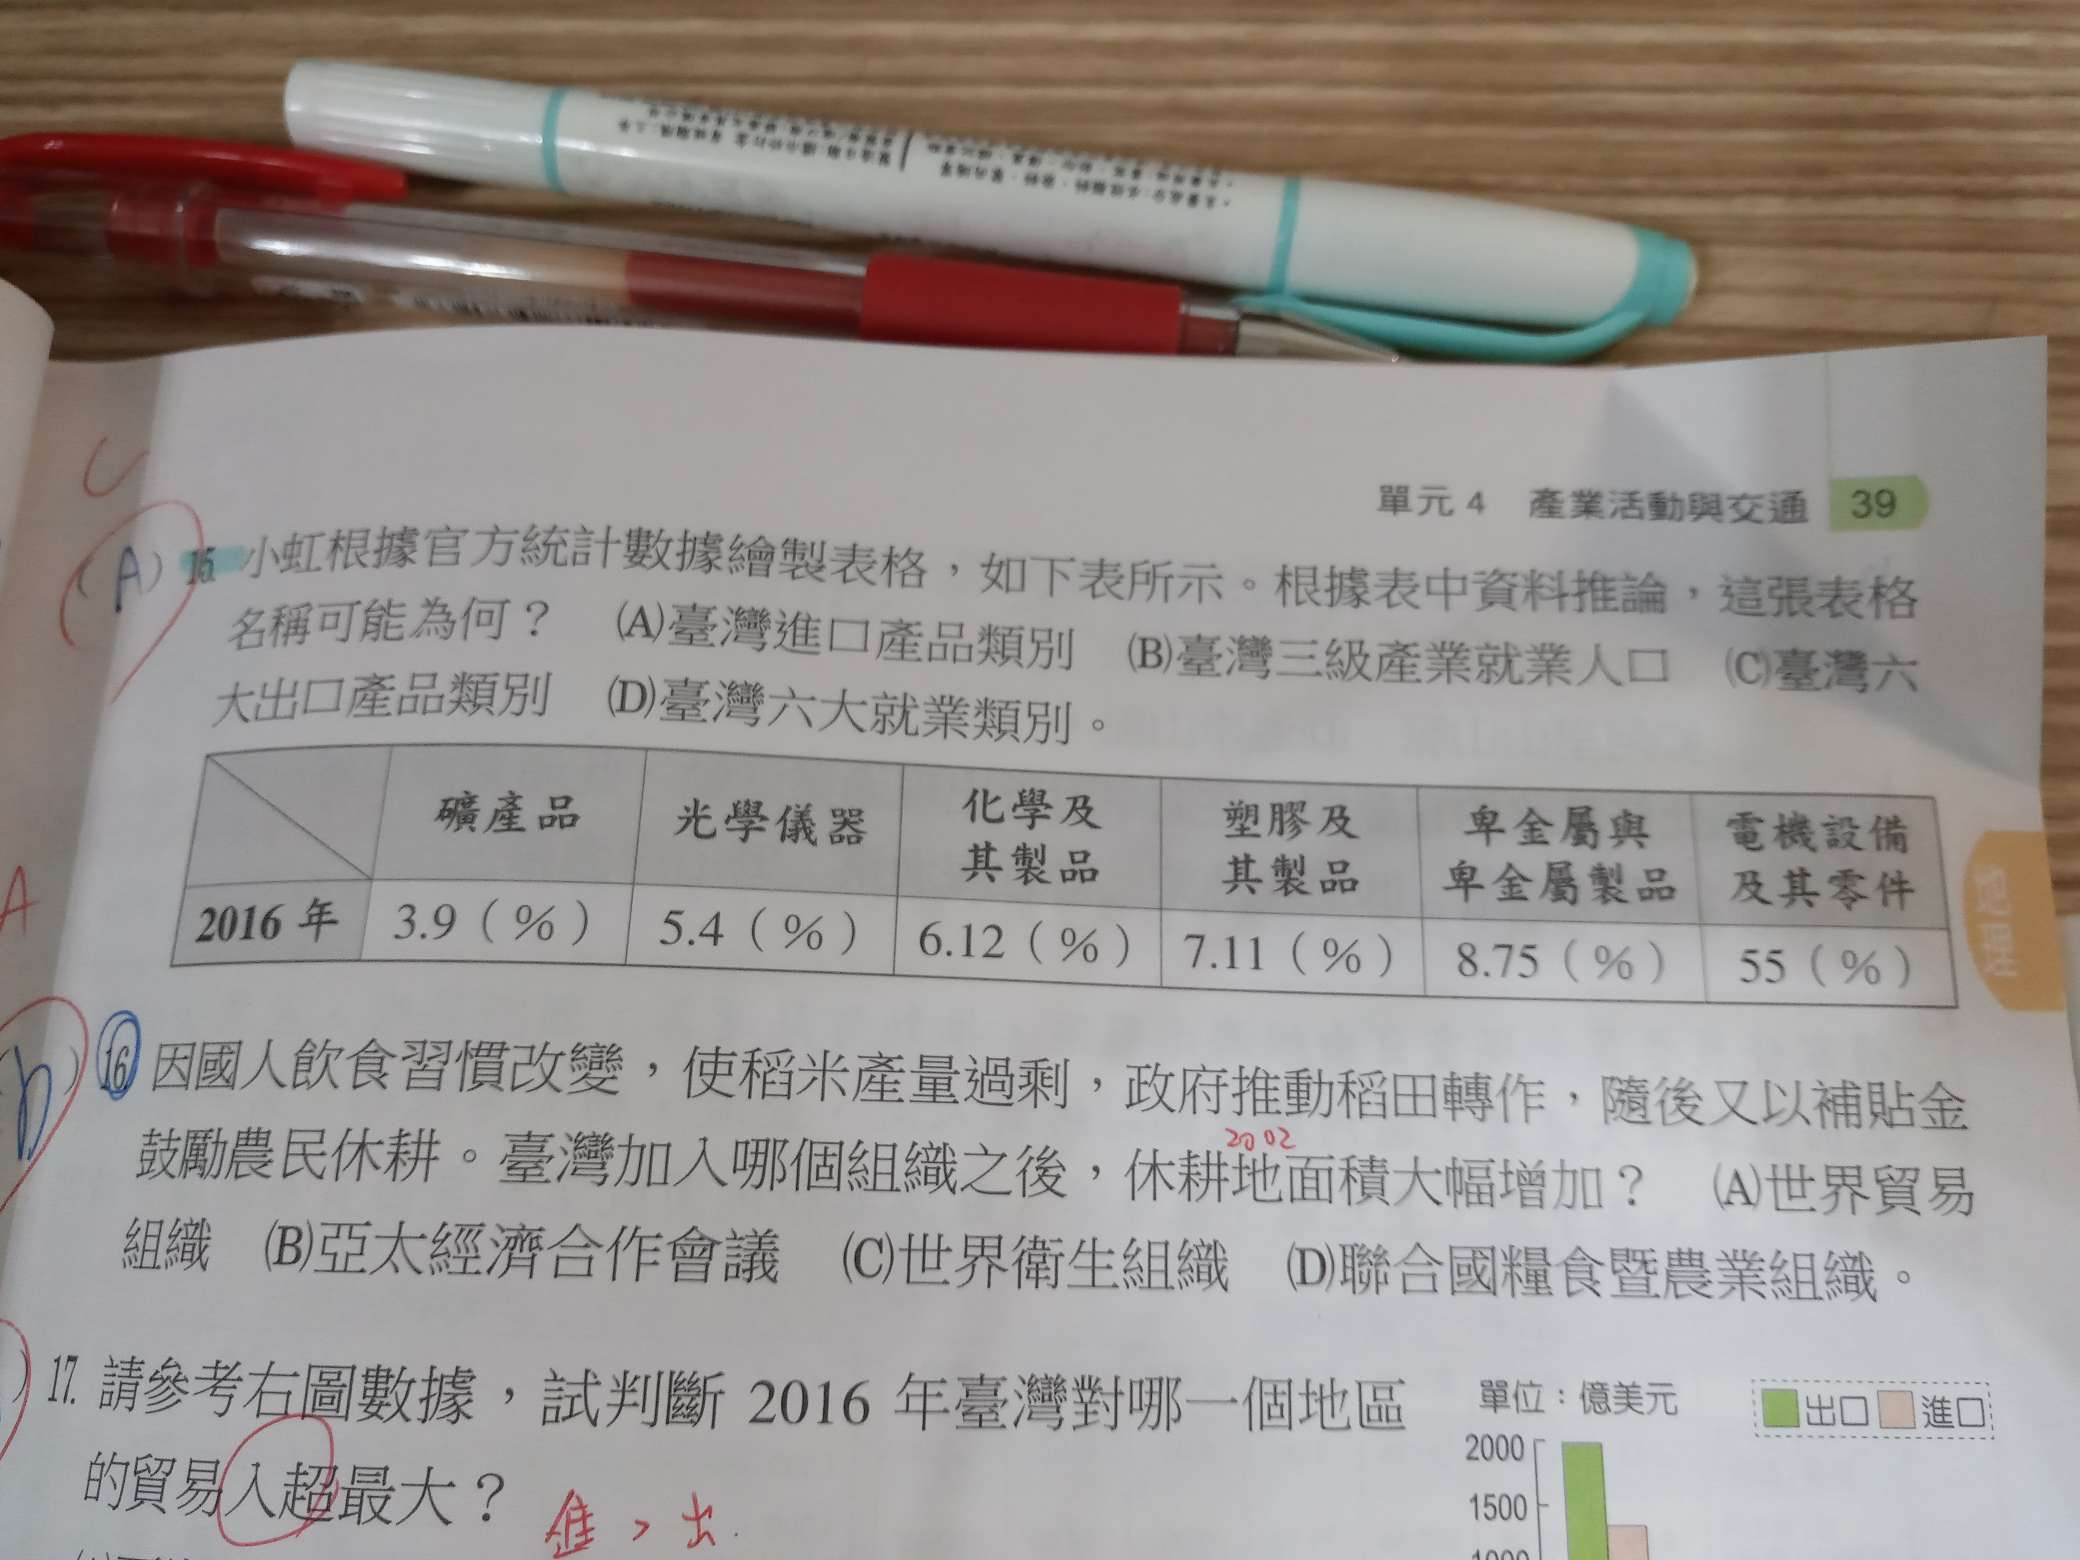 單元 4 產業活動與交通 39
C
(A) 15 小虹根據官方統計數據繪製表格，如下表所示。根據表中資料推論，這張表格
名稱可能為何？ (A)臺灣進口產品類別 (B)臺灣三級產業就業人口 (C)臺灣六
大出口產品類別 (D)臺灣六大就業類別。
礦產品 光學儀器 化學及其製品 塑膠及其製品 卑金屬與卑金屬製品 電機設備及其零件
2016 年 3.9（%） 5.4（%） 6.12（%） 7.11（%） 8.75（%） 55（%）
地理
A
(b) 16 因國人飲食習慣改變，使稻米產量過剩，政府推動稻田轉作，隨後又以補貼金
2002
鼓勵農民休耕。臺灣加入哪個組織之後，休耕地面積大幅增加？ (A)世界貿易
組織 (B)亞太經濟合作會議 (C)世界衛生組織 (D)聯合國糧食暨農業組織。
) 17. 請參考右圖數據，試判斷 2016 年臺灣對哪一個地區
的貿易入超最大？
進 > 出
單位：億美元
出口 進口
2000
1500
1000